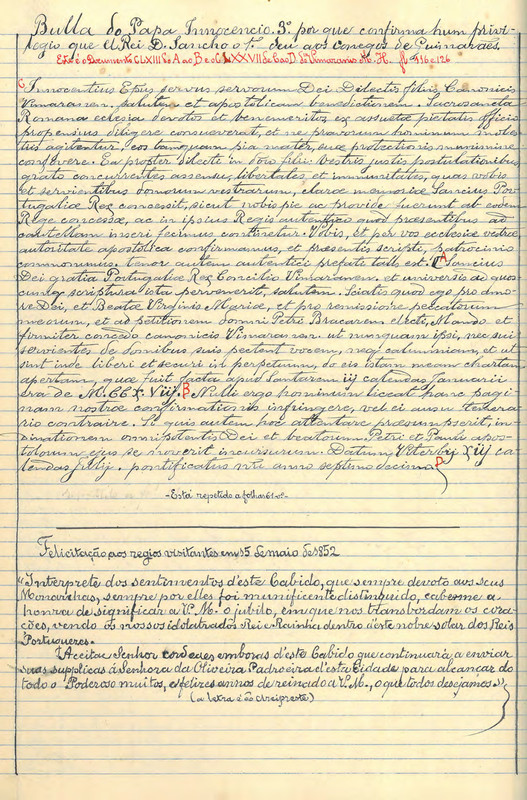 Bulla do Papa Innocencio 3º por que confirma hum privi-
legio que el Rei D. Sancho o 1º deu aos conegos de Guimarães.
Este é o Documento CLXIII de A ao B e o CLXXVII de C ao D de Vimaranis M. H. fl 116 e 126
Innocentius Epus servus servorum Dei Dilectis filiis Canonicis
Vimaranen. salutem et apostolicam benedictionem. Sacrosancta
Romana eclesia devotos et benemeritos ex assuetæ pietatis officio
propensius diligere consuevit, et ne pravorum hominum molestiis
agitentur, eos tamquam pia mater, suæ protectionis munimine
confovere. Ea propter dilecti in Dño filii vestris justis postulationibus
grato concurrentes assensu, libertates et immunitates, quas vobis
et servientibus domorum vestrarum, claræ memoriæ Sancius Por-
tugaliæ Rex concessit, sicut nobis pie ac provide fuerunt ab eodem
Rege concessæ, ac in ipsius Regis autentico quod præsentibus ad
cautellam inseri fecimus continetur. Vobis, et per vos ecclesiæ vestræ,
autoritate apostolica confirmamus, et præsentis scripti, patrocinio
communimus. Tenor autem autentici prefati talis est. A Sancius
Dei gratia Portugaliæ Rex Concilio Vimaranen. et universis ad quos-
cumq scriptura ista pervenerit, salutem. Sciatis quod ego pro amo-
re Dei, et Beatæ Virginis Mariæ, et pro remissione peccatorum
meorum, et ad petitionem domni Petri Bracaren electi, Mando et
firmiter concedo canonicis Vimaranen. ut nunquam ipsi, nec sui
servientes de domibus suis pectent vocem, neq calumniam, et ut
sint inde liberi et securi in perpetuum, do eis istam meam chartam
apertam, quæ fuit facta apud Santarem iij calendas Januarii
era de M. CC X. Viij. B Nulli ergo hominum liceat hanc pagi-
nam nostræ confirmationis infringere, vel ei ausu temera-
rio contraire. Si quis autem hoc attentare præsumpserit, in-
dinationem omnipotentis Dei et beatorum Petri et Pauli apos-
tolorum ejus se noverit incursurum. Datum Viterbij Xiij ca-
lendas julij. pontificatus ñri anno septimo decimo. D
-Está repetido a folhas 61 v-
Felicitação aos regios visitantes em 15 de maio de 1852
"Interprete dos sentimentos d'este Cabido, que sempre devoto aos seus
Monarchas, sempre por elles foi munificente distinguido, cabe-me a
honra de significar a V. M. o jubilo, em que nos transbordam os cora-
ções, vendo os nossos idolatrados Rei e Rainha dentro d'este nobre solar dos Reis
Portugueres.
Acceitae Senhor cordeaes emboras d'este Cabido que continuará a enviar
suas supplicas á Senhora da Oliveira Padroeira d'esta Cidade para alcançar do
todo o Poderoso muitos, e felizes annos de reinado a V. M., o que todos desejamos."
(a letra é do Arcipreste)